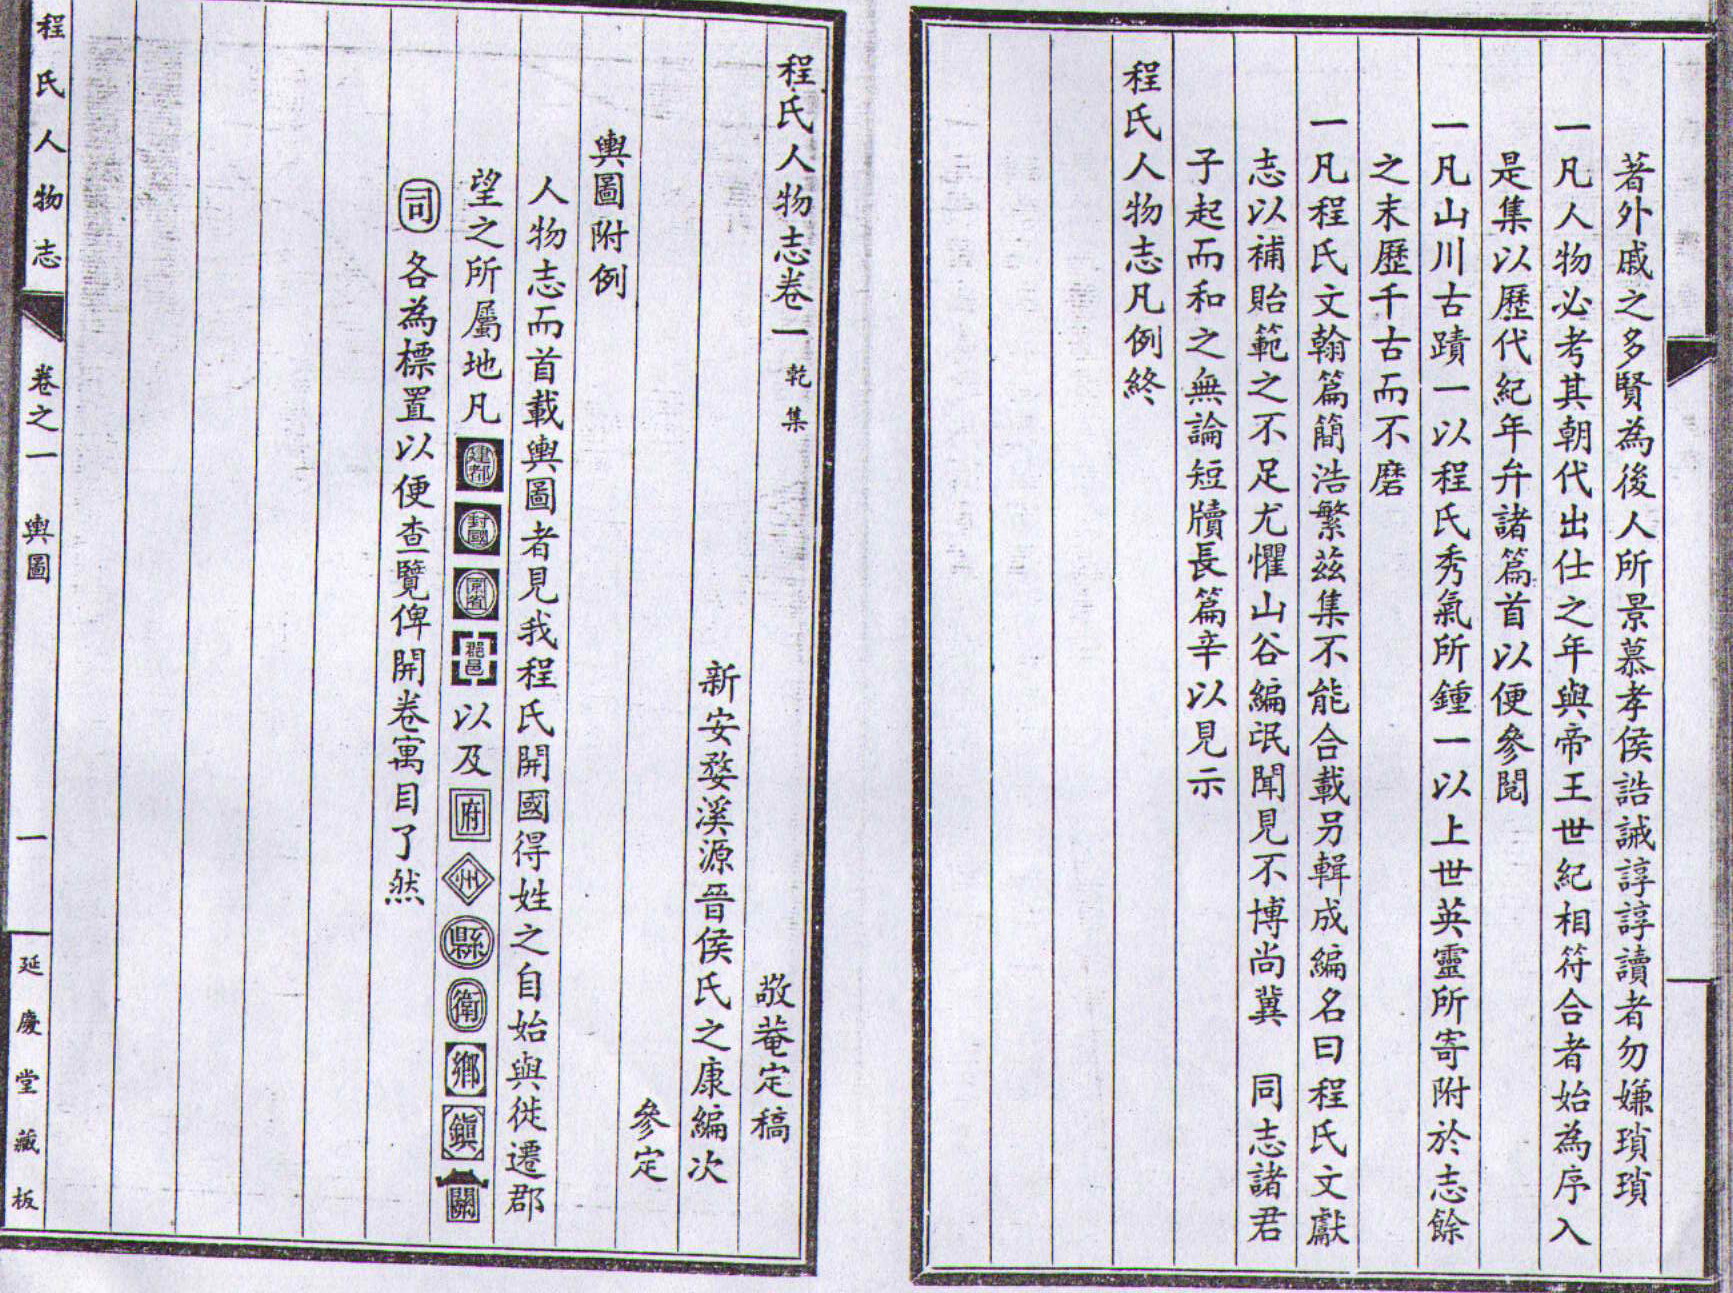 著外戚之多賢為後人所景慕孝侯誥誡諄諄讀者勿嫌瑣瑣
一凡人物必考其朝代出仕之年與帝王世紀相符合者始為序入
是集以歷代紀年弁諸篇首以便參閱
一凡山川古蹟一以程氏秀氣所鍾一以上世英靈所寄附於志餘
之末歷千古而不磨
一凡程氏文翰篇簡浩繁茲集不能合載另輯成編名曰程氏文獻
志以補貽範之不足尤懼山谷編氓聞見不博尚冀 同志諸君
子起而和之無論短牘長篇辛以見示
程氏人物志凡例終
程氏人物志卷一 乾集
敬菴定稿
新安婺溪源晉侯氏之康編次
參定
輿圖附例
人物志而首載輿圖者見我程氏開國得姓之自始與徙遷郡
望之所屬地凡建都封國京省郡邑以及府州縣衛鄉鎮關
司各為標置以便查覽俾開卷寓目了然
程氏人物志
卷之一 輿圖
一
延慶堂藏板